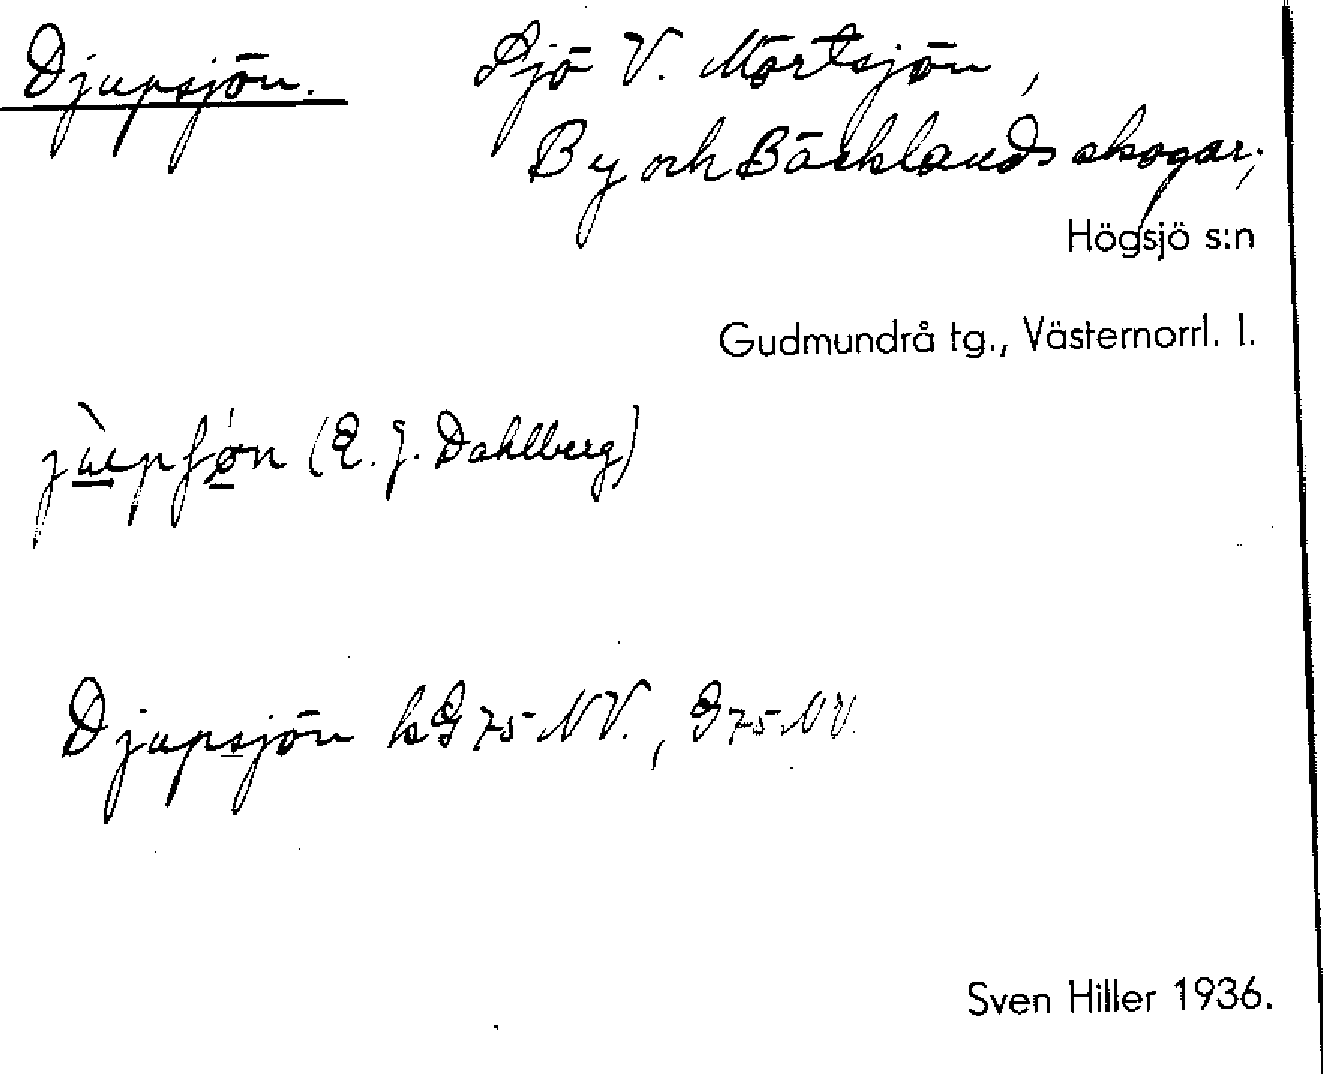 Djupsjön. Sjö V. Mörtsjön,
By och Bäcklands skogar;
Högsjö s:n
Gudmundrå tg., Västernorrl. l.
(E. J. Dahlberg)
Djupsjön kG 75 NV., G 75 NV.
Sven Hiller 1936.